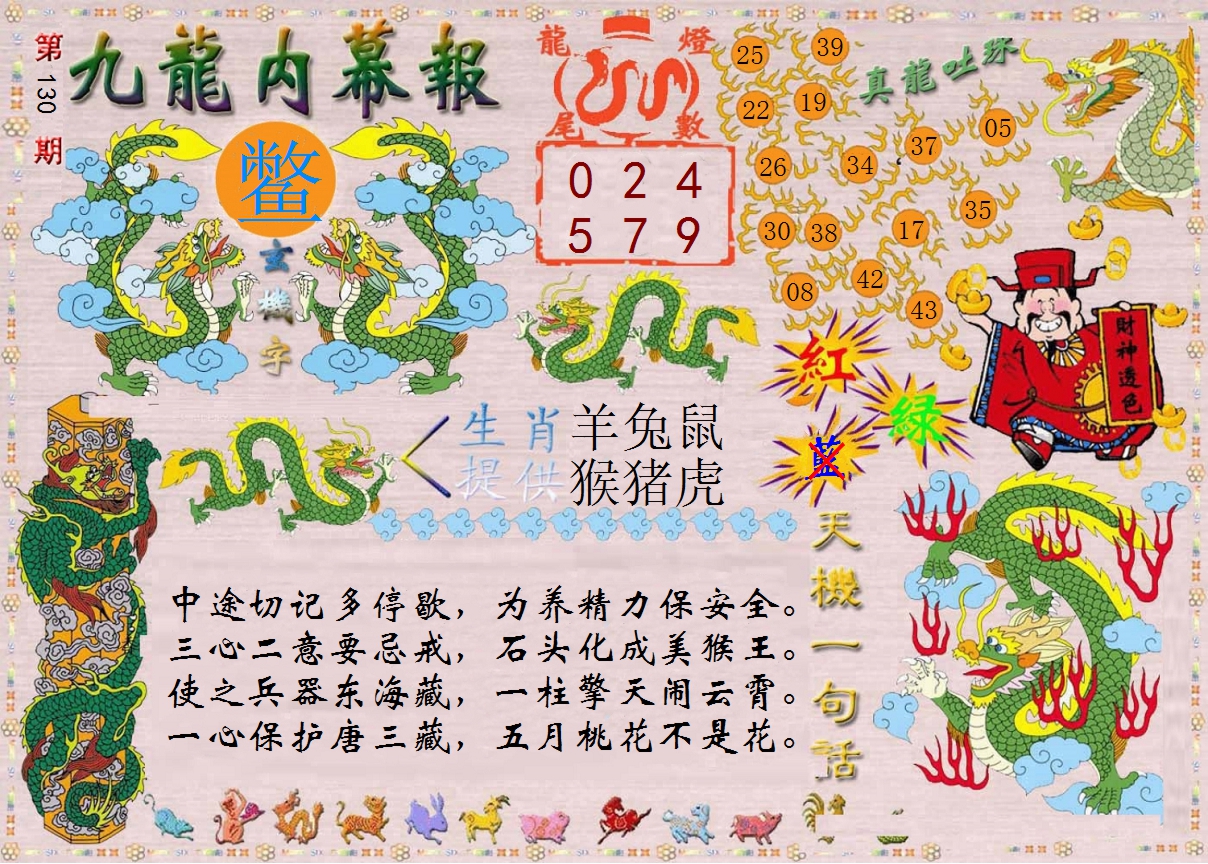 第130期
九龍内幕報
鳖
玄機字
龍尾
燈數
0 2 4
5 7 9
真龍吐珠
25
39
22
19
05
37
26
34
35
30
38
17
42
08
43
紅
綠
藍
財神透色
生肖
提供
羊兔鼠
猴猪虎
天機一句話
中途切记多停歇，为养精力保安全。
三心二意要忌戒，石头化成美猴王。
使之兵器东海藏，一柱擎天闹云霄。
一心保护唐三藏，五月桃花不是花。